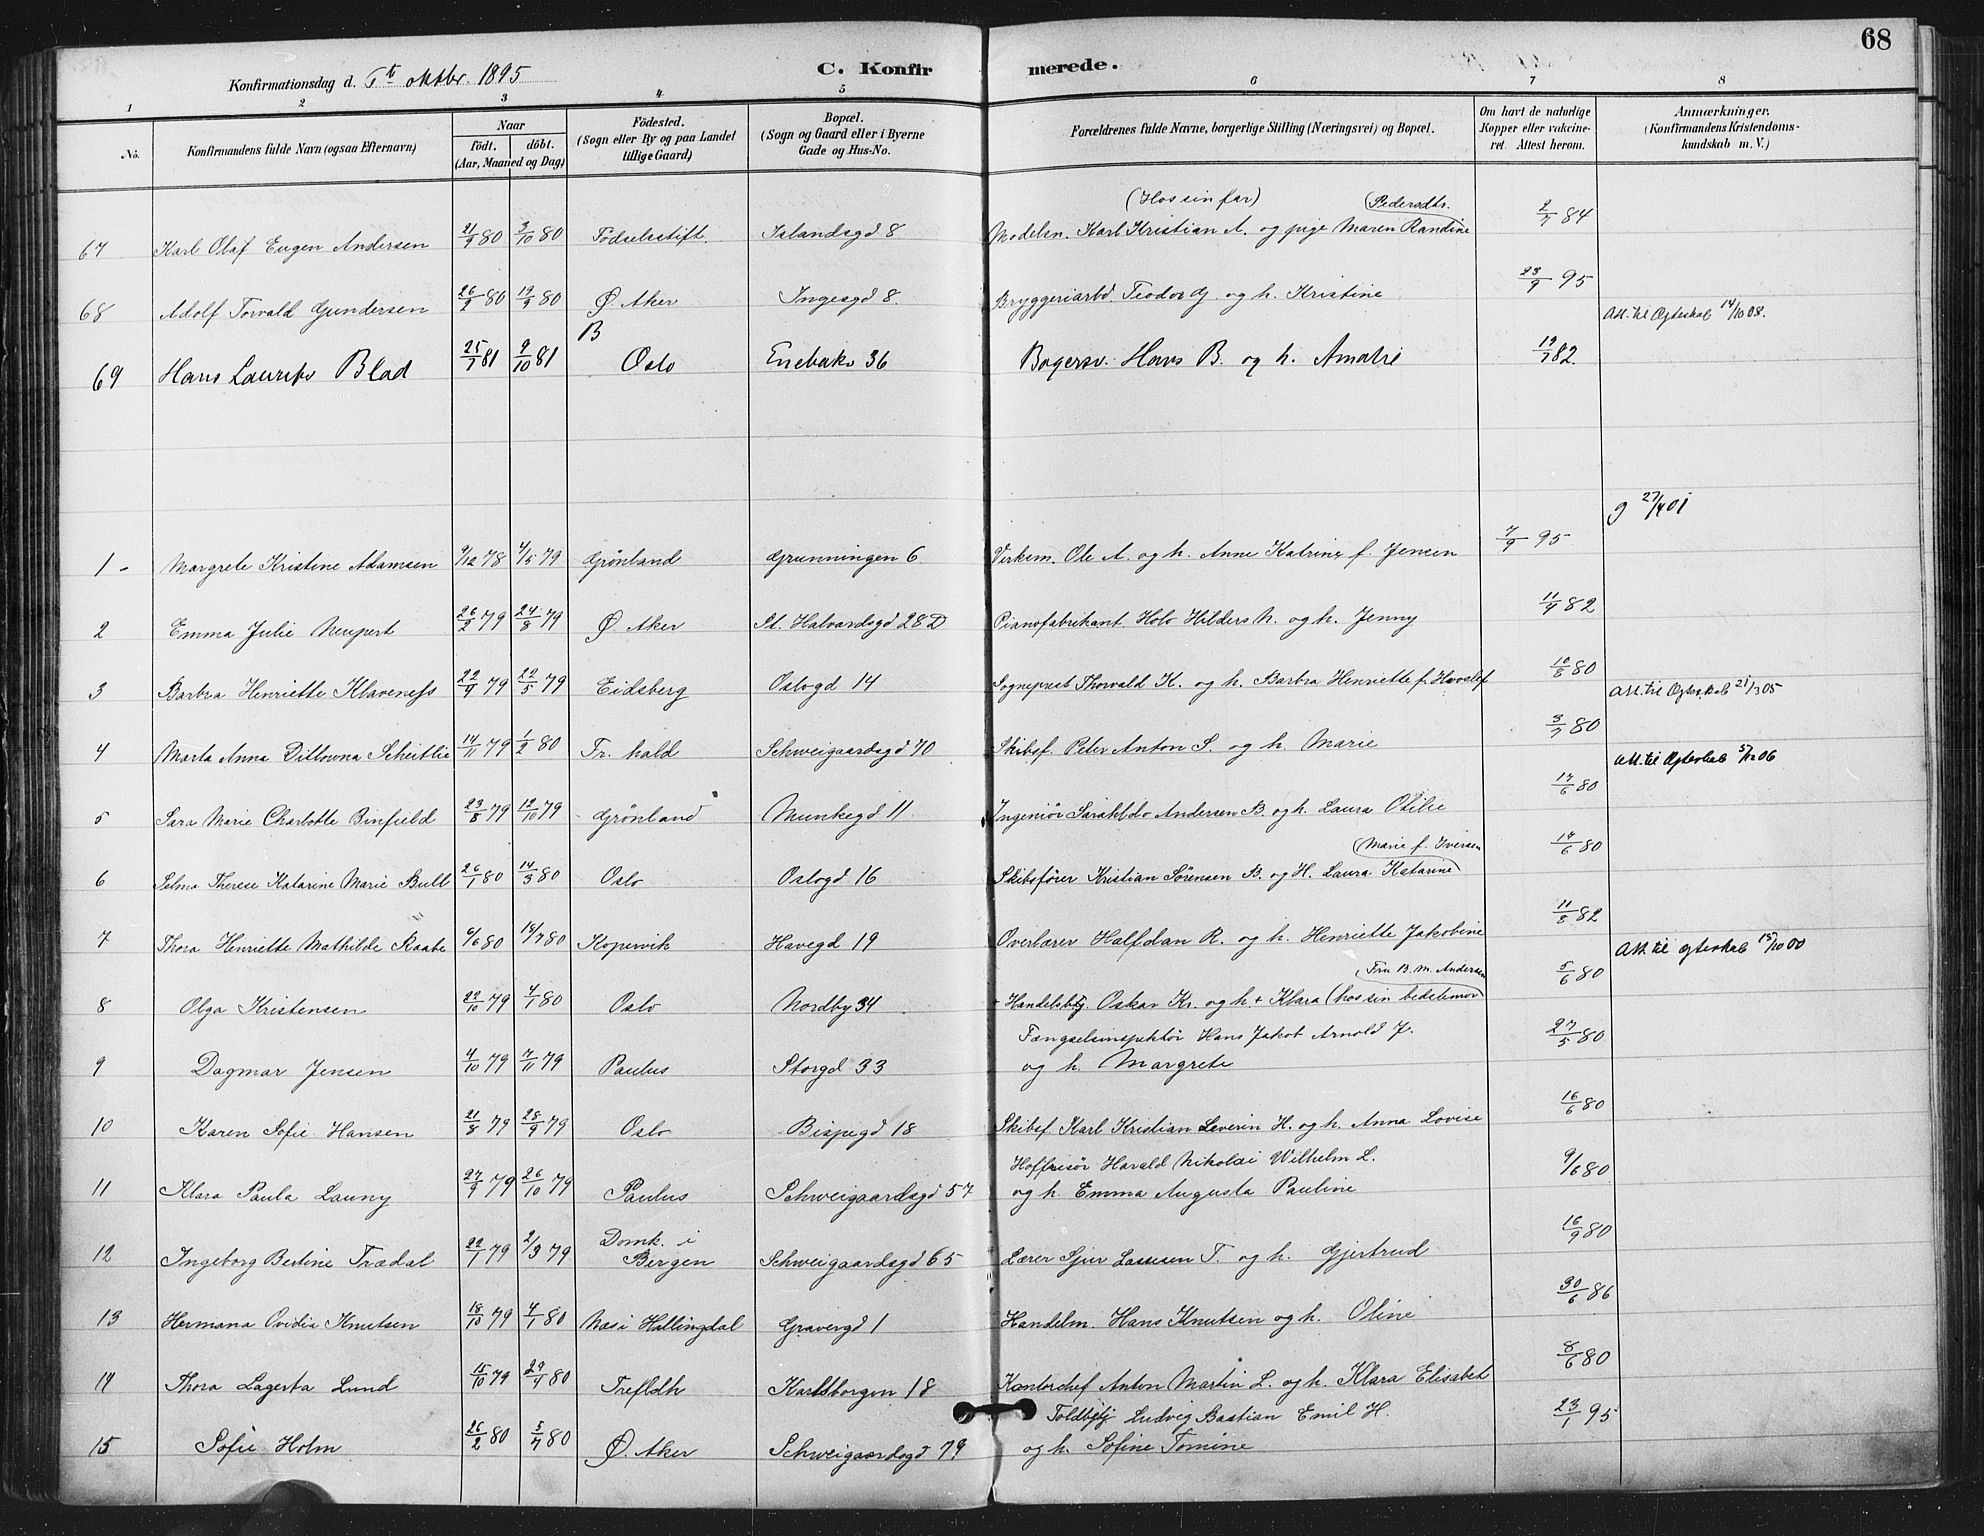 68
Konfirmationsdag d. oktbr. 1895 C. Konfirmerede.
1 2 3 4 5 6 7 8
No. Konfirmandens fulde Navn (ogsaa Efternavn) Naar født. døbt. (Aar, Maaned og Dag) Fødested. (Sogn eller By og paa Landet tillige Gaard) Bopæl. (Sogn og Gaard eller i Byerne Gade og Hus-No. Forældrenes fulde Navne, borgerlige Stilling (Næringsvei) og Bopæl. Om havt de naturlige Kopper eller vakcineret. Attest herom. Anmærkninger. (Konfirmandens Kristendomskundskab m. V.)
(Hos sin far) Pedersdtr.
67 Karl Olaf Eugen Andersen 21/9 80 3/10 80 Fødselsstift. Islandsgd 8 Modelsn. Karl Kristian A. og pige Maren Randine 2/7 84
68 Adolf Torvald Gundersen 26/2 80 19/9 80 Ø. Aker Ingesgd 8. Bryggeriarbd Teodor G. og h. Kristine 23/9 95 Att. til Ægteskab 14/10 08.
B
69 Hans Laurits Blad 25/7 81 9/10 81 Oslo Enebakv 36 Bagersv. Hans B. og h. Amalie 19/7 82.
g 27/4 01
1 - Margrete Kristine Adamsen 9/12 78 4/5 79 Grønland Grunningen 6 Virksm. Ole A. og h. Anne Katrine f. Jensen 7/9 95
2 Emma Julie Neupert 26/2 79 24/8 79 Ø. Aker St. Halvardsgd 28 D Pianofabrikant Holv Hilders N. og h. Jenny 11/9 82
3 Barbra Henriette Klaveness 22/4 79 22/5 79 Eidsberg Oslogd 14 Sogneprest Thorvald K. og h. Barbra Henriette f. 10/8 80 Att. til Ægteskab 21/3 05
4 Marta Anna Scheitlie 14/11 79 1/2 80 Fr. hald Schweigaardsgd 70 Skibsf. Peter Anton S. og h. Marie 3/7 80 Att. til Ægteskab 5/12 06
5 Sara Marie Charlotte Binfield 23/8 79 12/10 79 Grønland Munkegd 11 Ingeniør Andersen B. og h. Laura Otilie 17/6 80
(Marie f. Iversen
6 Selma Therese Katarine Marie Bull 26/1 80 14/3 80 Oslo Oslogd 16 Skibsfører Kristian Sørensen B. og H. Laura Katarine 14/6 80
7 Thora Henriette Mathilde Raabe 6/6 80 18/7 80 Kopervik Havegd 19 Overlærer Halfdan R. og h. Henriette Jakobine 11/8 82 Att. til Ægteskab 15/10 00
(Fru B. M. Andersen
8 Olga Kristensen 22/10 79 4/1 80 Oslo Nordby 34 + Handelsbtj. Oskar Kr. og h. + Klara (hos sin bedstemor) 5/6 80
Fængselsinspektør Hans Jakob Arnold J.
9 Dagmar Jensen 4/10 79 7/11 79 Paulus Storgd 33 og h. Margrete 27/5 80
10 Karen Sofie Hansen 21/8 79 28/9 79 Oslo Bispegd 18 Skibsf. Karl Kristian Severin H. og h. Anna Lovise 16/6 80
Hoffrisør Harald Nikolai Wilhelm L.
11 Klara Paula Launy 27/9 79 26/10 79 Paulus Schweigaardsgd 57 og h. Emma Augusta Pauline 9/6 80
12 Ingeborg Bertine Trædal 22/1 79 2/3 79 Domk. i Bergen Schweigaardsgd 65 Lærer Sjur Lassesen T. og h. Gjertrud 16/9 80
13 Hermana Ovidia Knutsen 18/10 79 4/1 80 Nes i Hallingdal Gravergd 1 Handelm. Hans Knutsen og h. Oline 30/6 86
14 Thora Lagerta Lund 15/10 79 29/4 80 Trefldh Karlsborgen 18 Kontorchef Anton Martin L. og h. Klara Elisabet 8/6 80
Toldbtj Ludvig Bastian Emil H.
15 Sofie Holm 26/2 80 5/7 80 Ø. Aker Schweigaardsgd 79 og h. Sofine Tomine 23/1 95